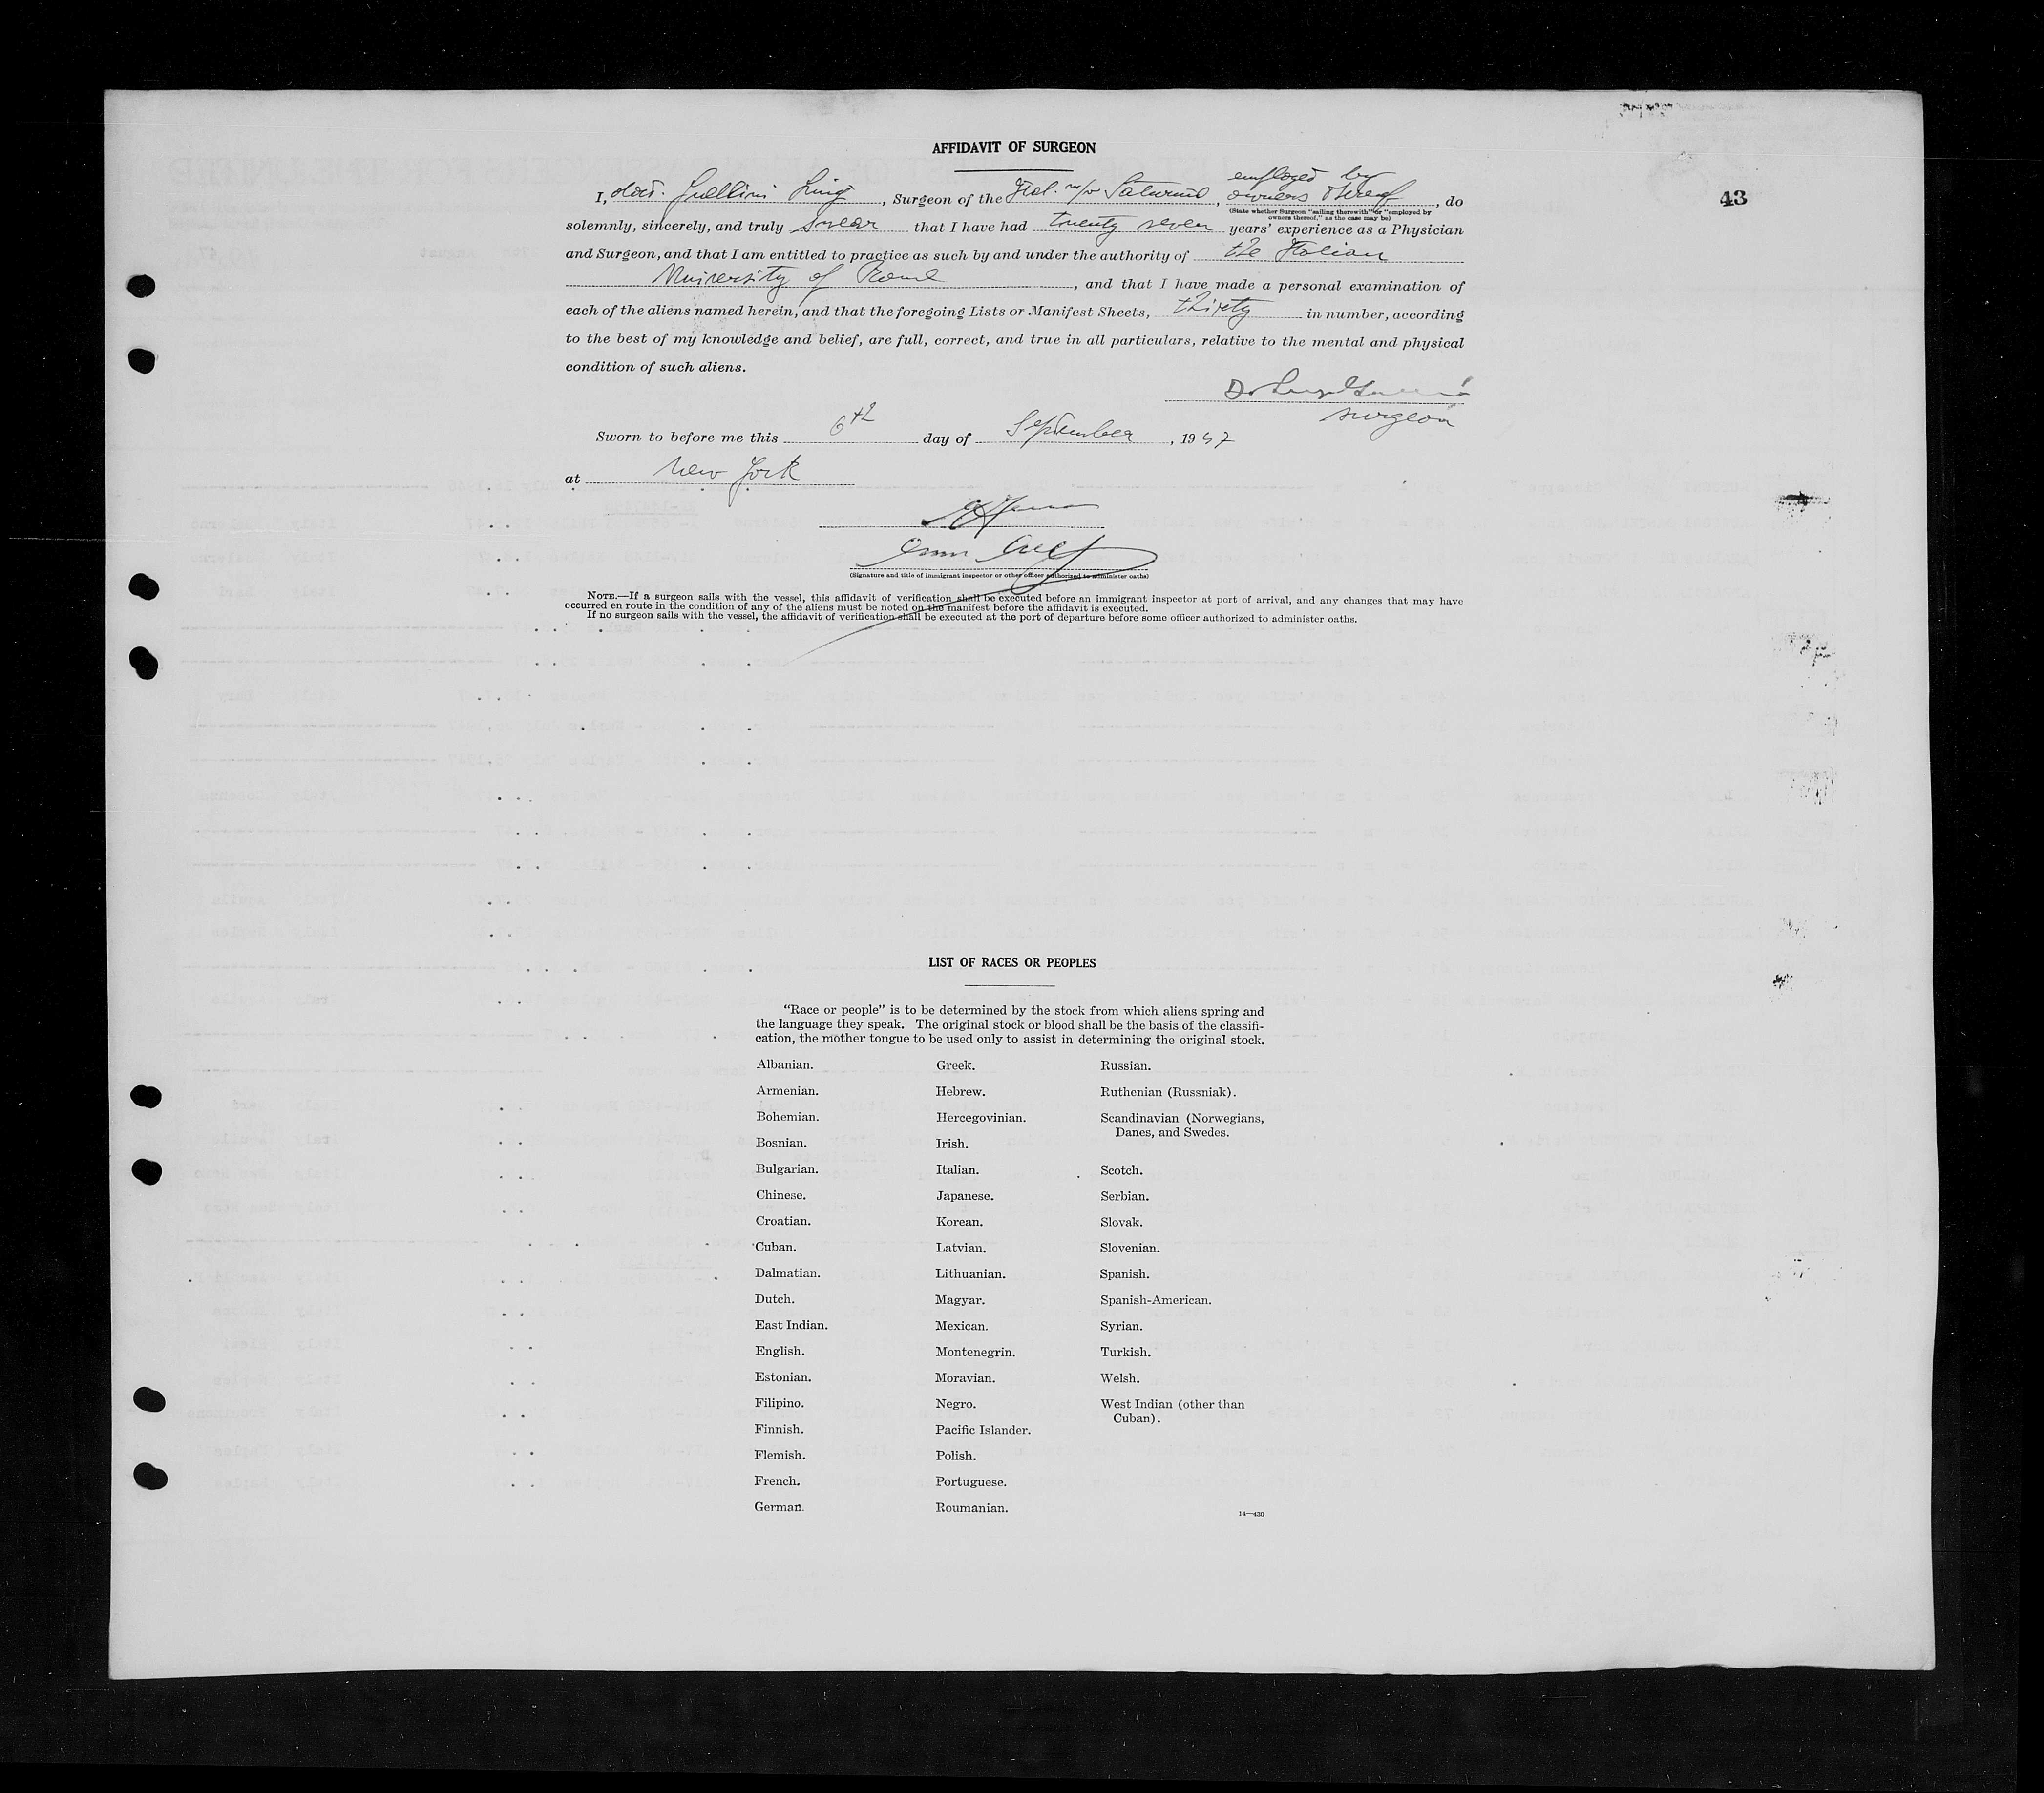 AFFIDAVIT OF SURGEON
43
employed by
I, dott. Luigi, Surgeon of the Ital. m/v Saturnia, owners thereof, do
(State whether Surgeon "sailing therewith" or "employed by
owners thereof," as the case may be)
solemnly, sincerely, and truly swear that I have had twenty seven years' experience as a Physician
and Surgeon, and that I am entitled to practice as such by and under the authority of the Italian
University of Rome, and that I have made a personal examination of
each of the aliens named herein, and that the foregoing Lists or Manifest Sheets, thirty in number, according
to the best of my knowledge and belief, are full, correct, and true in all particulars, relative to the mental and physical
condition of such aliens.
Dr
surgeon
Sworn to before me this 6th day of September, 1947
at New York
(Signature and title of immigrant inspector or other officer authorized to administer oaths)
NOTE.—If a surgeon sails with the vessel, this affidavit of verification shall be executed before an immigrant inspector at port of arrival, and any changes that may have
occurred en route in the condition of any of the aliens must be noted on the manifest before the affidavit is executed.
If no surgeon sails with the vessel, the affidavit of verification shall be executed at the port of departure before some officer authorized to administer oaths.
LIST OF RACES OR PEOPLES
"Race or people" is to be determined by the stock from which aliens spring and
the language they speak. The original stock or blood shall be the basis of the classifi-
cation, the mother tongue to be used only to assist in determining the original stock.
Albanian.
Armenian.
Bohemian.
Bosnian.
Bulgarian.
Chinese.
Croatian.
Cuban.
Dalmatian.
Dutch.
East Indian.
English.
Estonian.
Filipino.
Finnish.
Flemish.
French.
German.
Greek.
Hebrew.
Hercegovinian.
Irish.
Italian.
Japanese.
Korean.
Latvian.
Lithuanian.
Magyar.
Mexican.
Montenegrin.
Moravian.
Negro.
Pacific Islander.
Polish.
Portuguese.
Roumanian.
Russian.
Ruthenian (Russniak).
Scandinavian (Norwegians,
Danes, and Swedes.
Scotch.
Serbian.
Slovak.
Slovenian.
Spanish.
Spanish-American.
Syrian.
Turkish.
Welsh.
West Indian (other than
Cuban).
14—430